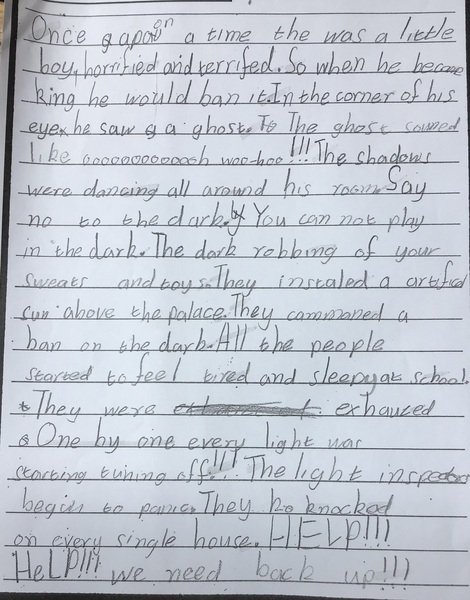 Once apon a time the was a little
boy, horrified and terrifed. So when he became
king he would ban it. In the corner of his
eye, he saw a ghost. The ghost souned
like oooooooooooosh woo-hoo!!! The shadows
were dancing all around his room. Say
no to the dark. You can not play
in the dark. The dark robbing of your
sweats and toys. They instaled a artifical
sun above the palace. They cammaned a
ban on the dark. All the people
started to feel tired and sleepy at school.
They were exhauted
One by one every light was
starting tuning off!!! The light inspectors
begin to panic. They knocked
on every single house. HELP!!!
HeLP!!! we need back up!!!